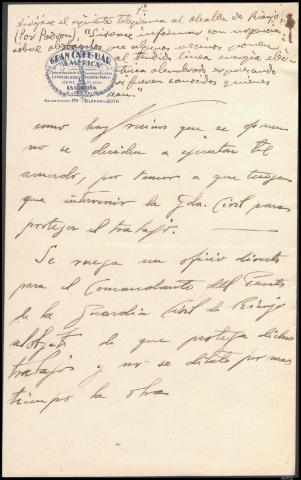 1º
Diríjase el siguiente telegrama al alcalde de Rianjo
(Por Padrón), "Sírvase informar con urgencia
sobre obstáculos que algunos vecinos ponen
al tendido línea energía eléc-
trica alumbrado expresando
si fuesen conocidos quienes
son."
GRAN CAFE-BAR
"AMERICA"
LA CORUÑA
APARTADO, 179 TELÉFONO, 2076
como hay vecinos que se oponen
no se deciden a ejecutar el
acuerdo, por temor a que tenga
que intervenir la Gda. Civil para
proteger el trabajo.
Se ruega un oficio directo
para el Comandante del Puesto
de la Guardia Civil de Rianjo
al objeto de que proteja dichos
trabajos y no se dilate por mas
tiempo la obra